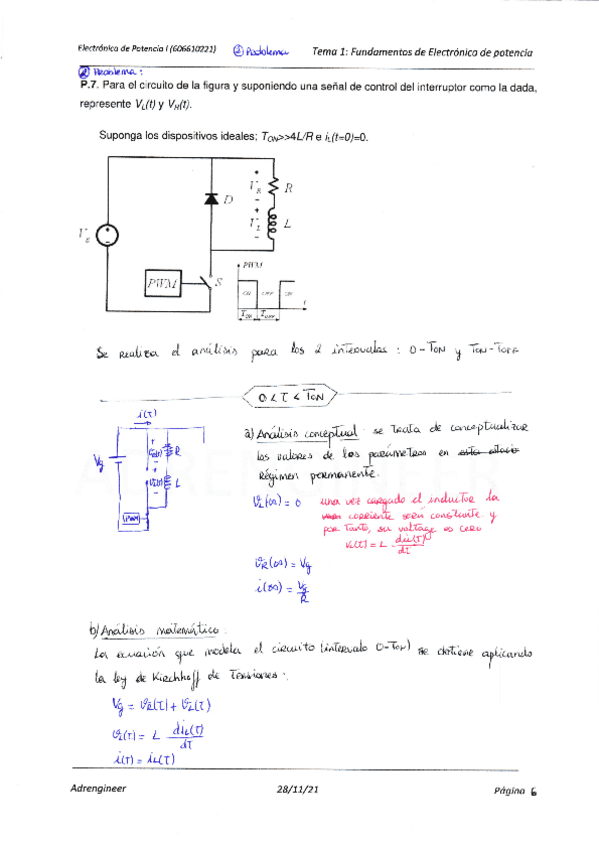 Electrónica de Potencia I (606610221) ② Problema Tema 1: Fundamentos de Electrónica de potencia
② Problema:
P.7. Para el circuito de la figura y suponiendo una señal de control del interruptor como la dada,
represente V_L(t) y V_R(t).
Suponga los dispositivos ideales; T_ON>>4L/R e i_L(t=0)=0.
V_g
D
+ V_R - R
+ V_L - L
PWM
S
PWM
ON OFF ON
t
T_ON T_OFF
Se realiza el análisis para los 2 intervalos: 0-TON y TON-TOFF
0 < t < TON
i(t)
Vg
R
L
PWM
a) Análisis conceptual: se trata de conceptualizar
los valores de los parámetros en
Régimen permanente.
vL(∞) = 0
una vez cargado el inductor la
corriente será constante y
por tanto, su voltaje es cero
vL(t) = L diL(t)/dt
vR(∞) = Vg
i(∞) = Vg/R
b) Análisis matemático:
La ecuación que modela el circuito (intervalo 0-TON) se obtiene aplicando
la ley de Kirchhoff de Tensiones:
Vg = vR(t) + vL(t)
vL(t) = L diL(t)/dt
i(t) = iL(t)
Adrengineer 28/11/21 Página 6